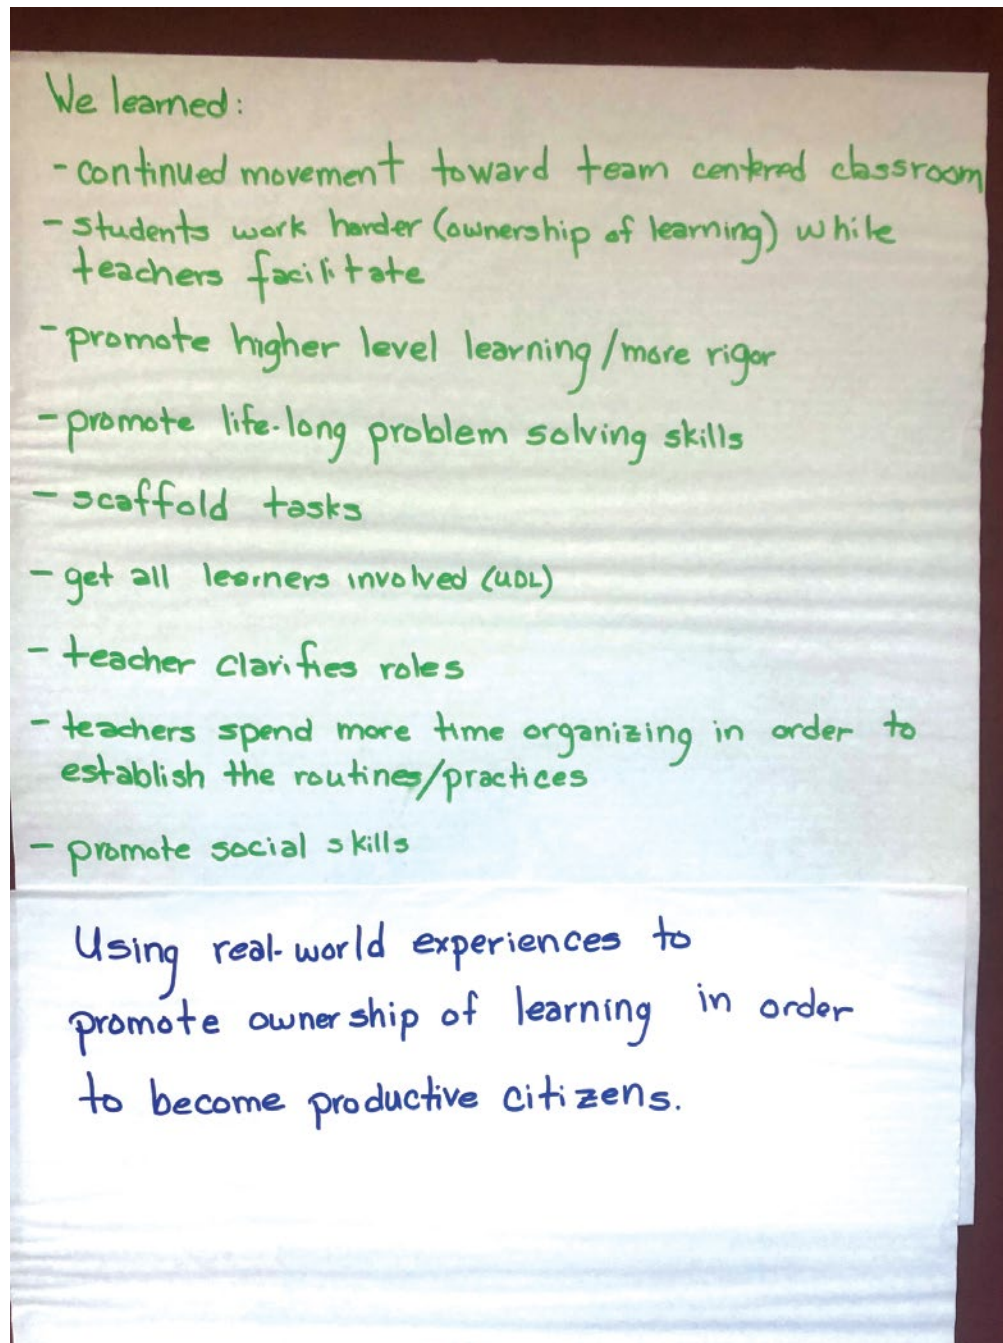 We learned:
- continued movement toward team centered classroom
- students work harder (ownership of learning) while
teachers facilitate
- promote higher level learning/more rigor
- promote life-long problem solving skills
- scaffold tasks
- get all learners involved (UDL)
- teacher clarifies roles
- teachers spend more time organizing in order to
establish the routines/practices
- promote social skills
Using real-world experiences to
promote ownership of learning in order
to become productive citizens.